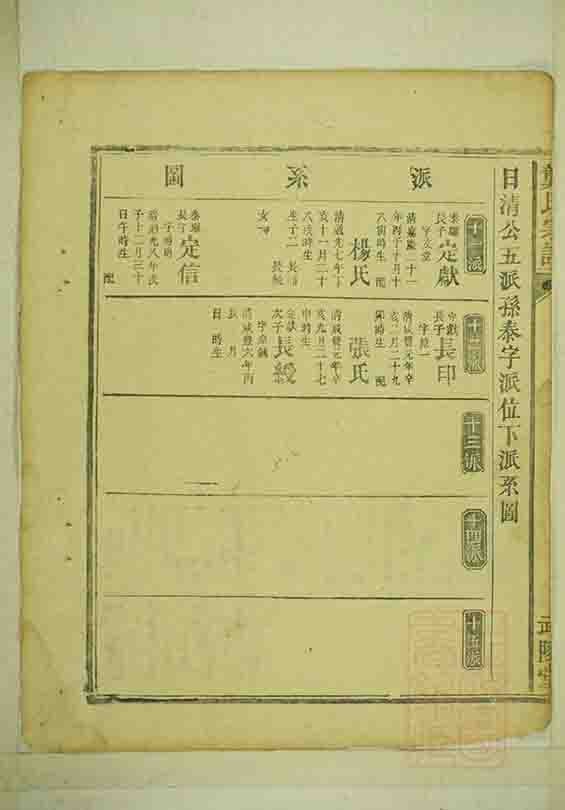 日清公五派孫泰字派位下派系圖
武陵堂
派系圖
定獻
長子
字文堂
清嘉慶二十一
年丙子十月十
八㓜時生 配
楊氏
清道光七年丁
亥十一月二十
八戌時生
生子二 長印
長綬
女
定信
道光八年戊
子十二月三十
日午時生 配
十二派
長印
長子
清咸豐元年辛
亥二月二十九
卯時生 配
張氏
清咸豐元年辛
亥九月二十七
申時生
長綬
次子
清咸豐六年丙
辰 月
日 時生
十三派
十四派
十五派